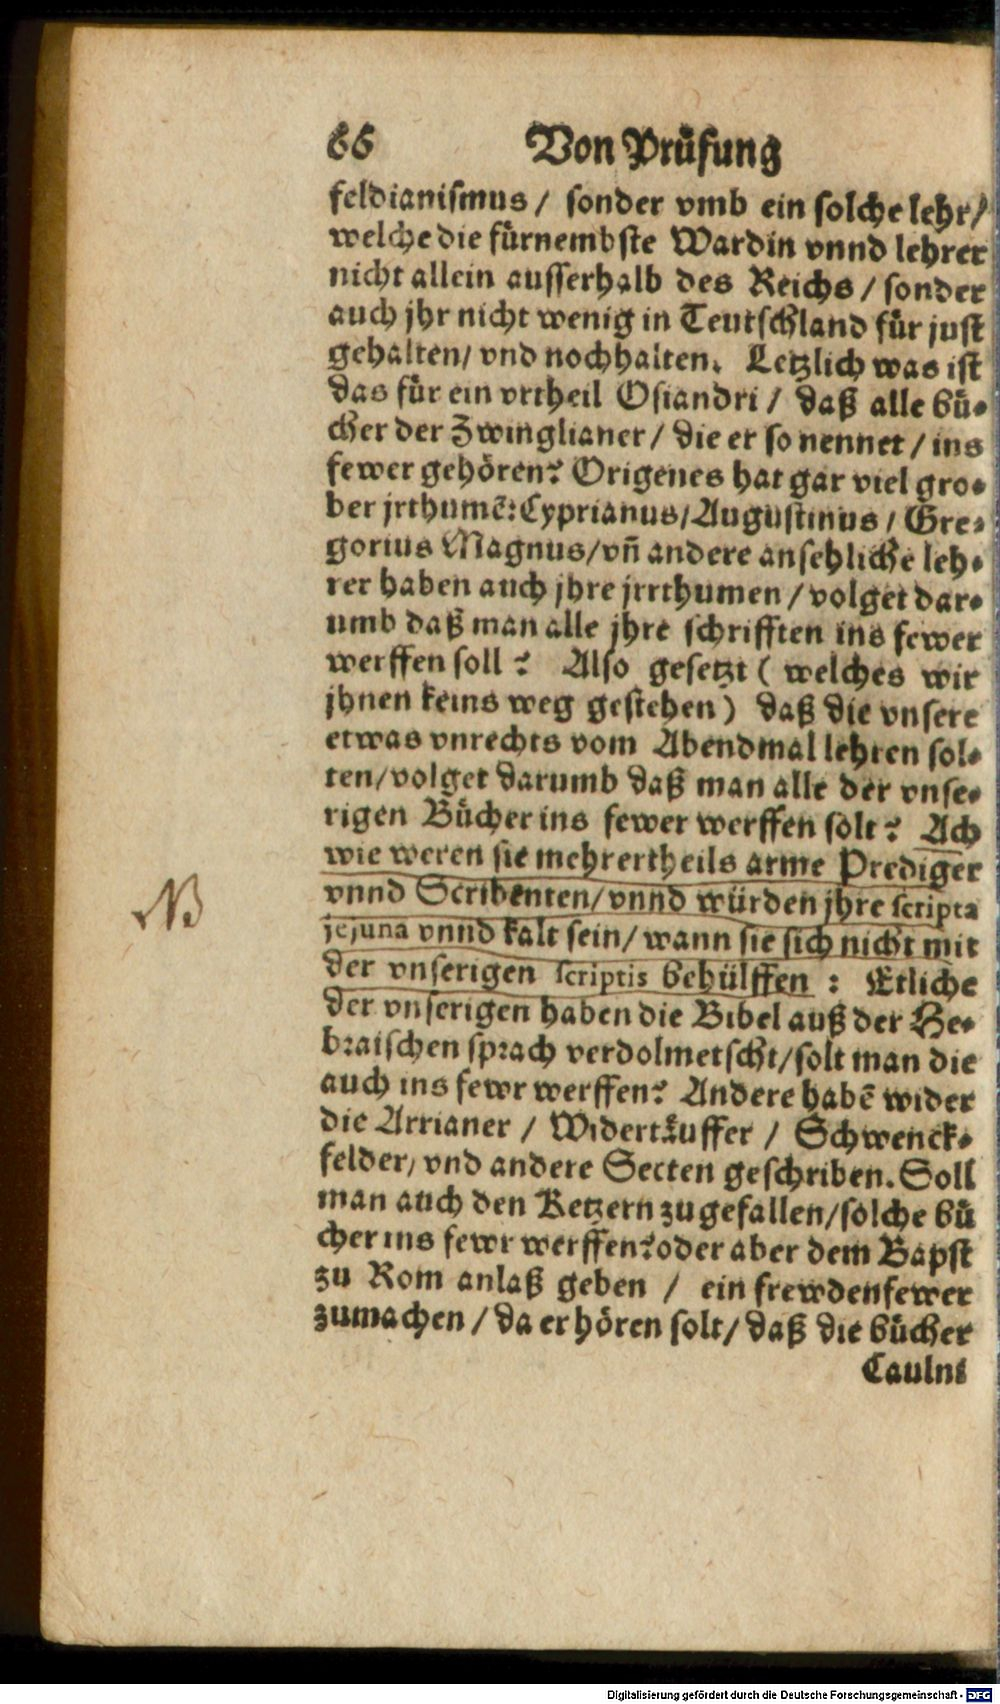 66 Von Prüfung
feldianismus / sonder vmb ein solche lehr /
welche die fürnembste Wardin vnnd lehrer
nicht allein ausserhalb des Reichs / sonder
auch jhr nicht wenig in Teutschland für just
gehalten / vnd noch halten. Letzlich was ist
das für ein vrtheil Osiandri / daß alle bü-
cher der Zwinglianer / die er so nennet / ins
fewer gehören? Origenes hat gar viel gro-
ber jrthumē: Cyprianus / Augustinus / Gre-
gorius Magnus / vñ andere ansehliche leh-
rer haben auch jhre jrrthumen / volget dar-
umb daß man alle jhre schrifften ins fewer
werffen soll? Also gesetzt ( welches wir
jhnen keins weg gestehen ) daß die vnsere
etwas vnrechts vom Abendmal lehren sol-
ten / volget darumb daß man alle der vnse-
rigen Bücher ins fewer werffen solt? Ach
wie weren sie mehrertheils arme Prediger
vnnd Scribenten / vnnd würden jhre scripta
NB
jejuna vnnd kalt sein / wann sie sich nicht mit
der vnserigen scriptis behülffen : Etliche
der vnserigen haben die Bibel auß der He-
braischen sprach verdolmetscht / solt man die
auch ins fewr werffen? Andere habē wider
die Arrianer / Widertäuffer / Schwenck-
felder / vnd andere Secten geschriben. Soll
man auch den Ketzern zu gefallen / solche bü
cher ins fewr werffen? oder aber dem Bapst
zu Rom anlaß geben / ein frewdenfewer
zumachen / da er hören solt / daß die bücher
Caulni
Digitalisierung gefördert durch die Deutsche Forschungsgemeinschaft - DFG